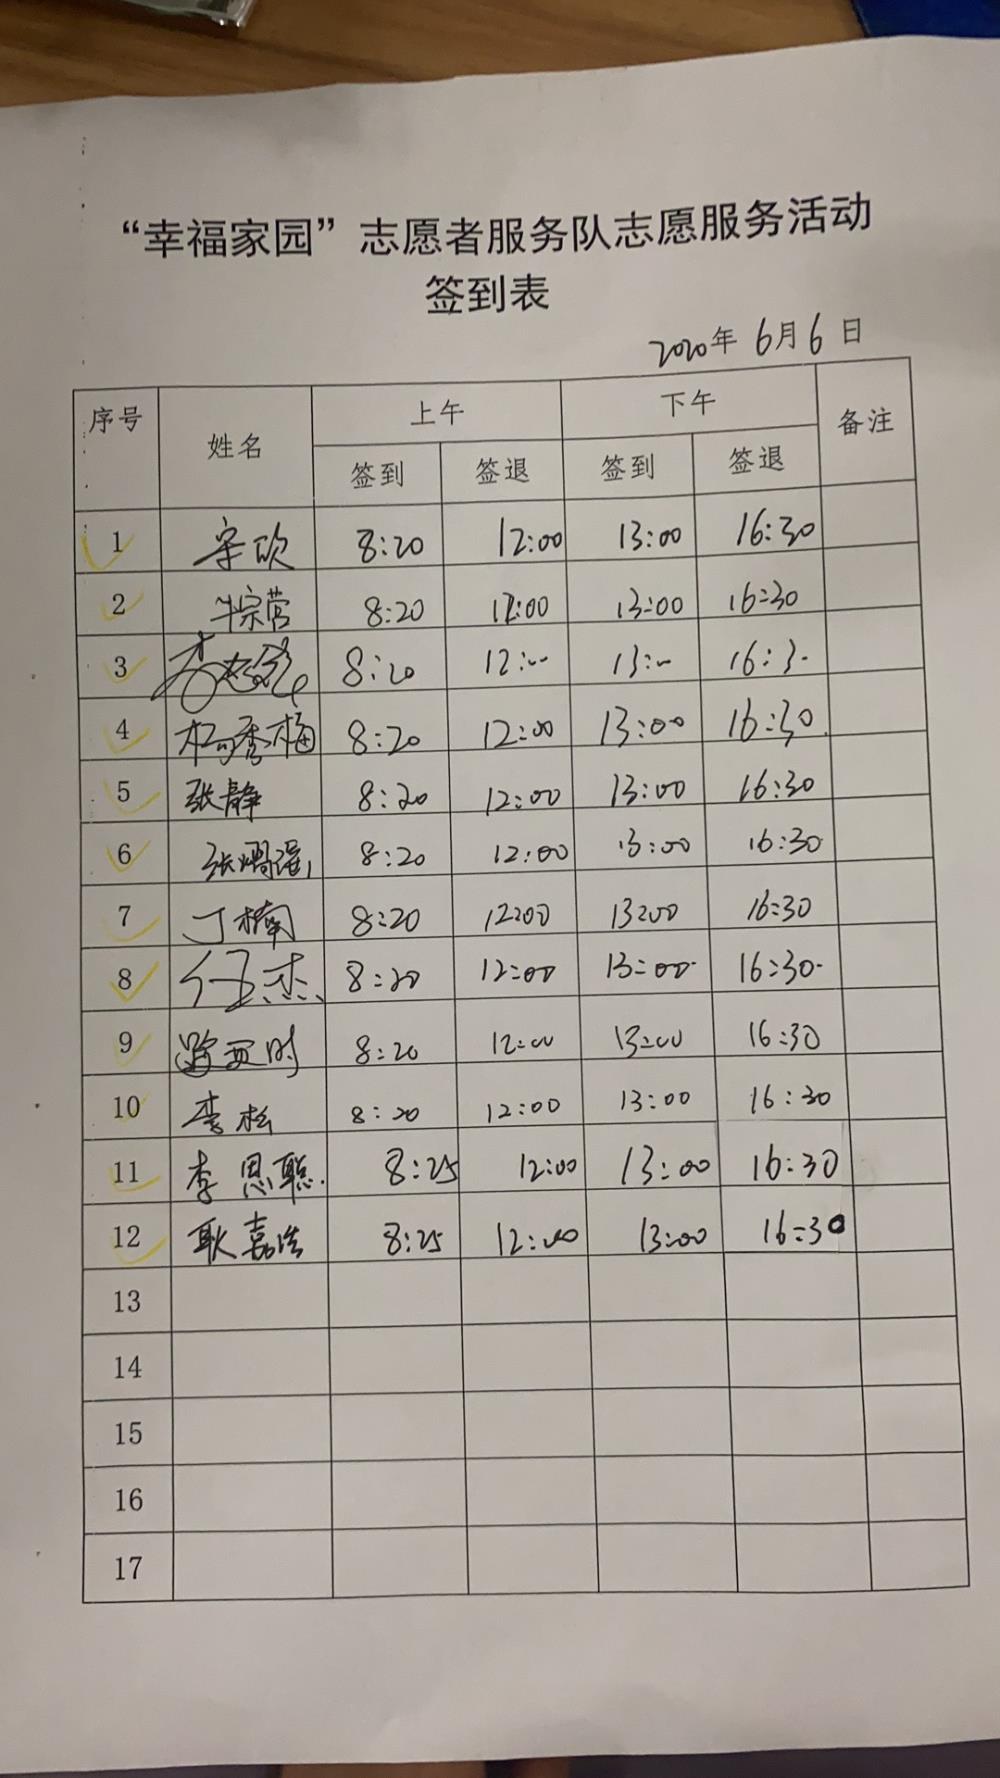 “幸福家园”志愿者服务队志愿服务活动
签到表
2020年 6月6日
序号 姓名 上午 下午 备注
签到 签退 签到 签退
1 8:20 12:00 13:00 16:30
2 牛宗营 8:20 12:00 13:00 16:30
3 8:20 12:00 13:00 16:30
4 杨秀梅 8:20 12:00 13:00 16:30
5 张静 8:20 12:00 13:00 16:30
6 张 8:20 12:00 13:00 16:30
7 丁楠 8:20 12:00 13:00 16:30
8 任杰 8:20 12:00 13:00 16:30
9 8:20 12:00 13:00 16:30
10 李松 8:20 12:00 13:00 16:30
11 李恩聪 8:25 12:00 13:00 16:30
12 耿嘉浩 8:25 12:00 13:00 16:30
13
14
15
16
17